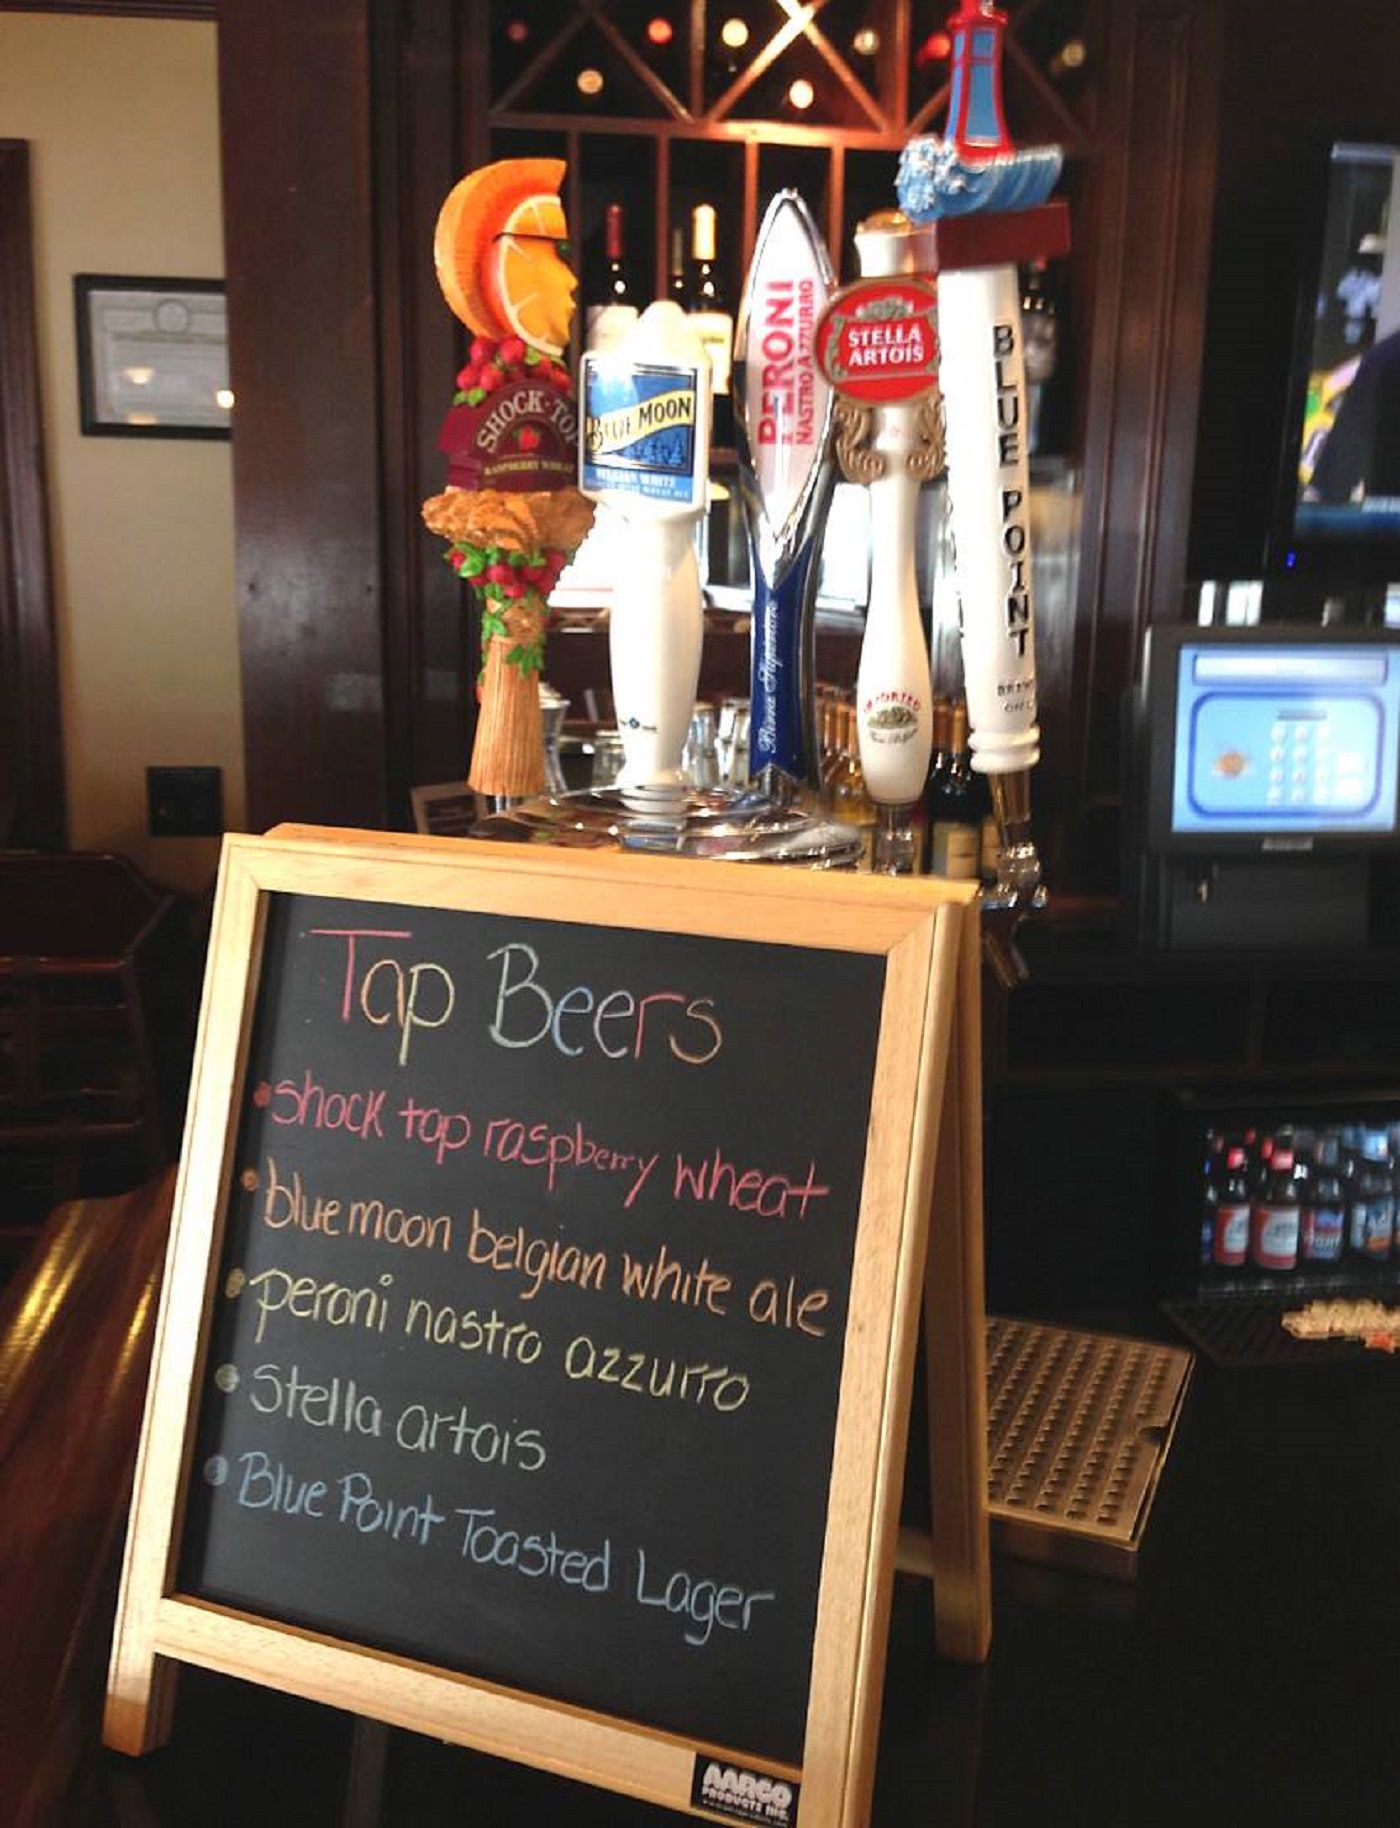 SHOCK·TOP
RASPBERRY WHEAT
BLUE MOON
BELGIAN WHITE
PERONI
NASTRO AZZURRO
Birra Superiore
STELLA
ARTOIS
IMPORTED
BLUE POINT
Tap Beers
•shock top raspberry wheat
•blue moon belgian white ale
•peroni nastro azzurro
•Stella artois
•Blue Point Toasted Lager
AARCO
PRODUCTS INC.